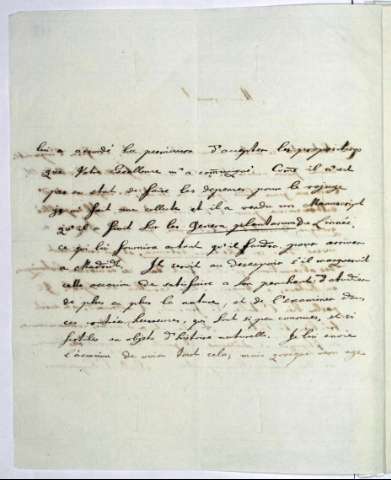 lui a accordé la permission d'accepter les propositions
que Votre Excellence m'a communiqué. Come il n'est
pas en etat de faire les depenses pour le voyage
j'ai fait une collecte et il a vendu un Manuscript
qu'il a fait sur les Genera plantarum de Linnée,
ce qui lui fournira autant qu'il faudra pour arriver
a Madrid. Il seroit au desespoir s'il manqueroit
cette occasion de satisfaire a son penchant d'etudier
de plus en plus la nature, et de l'examiner dans
ces contrées heureuses, qui sont si peu connues, et si
fertiles en objets d'histoire naturelle. Je lui envie
l'occasion de voir tout cela, mais mon age